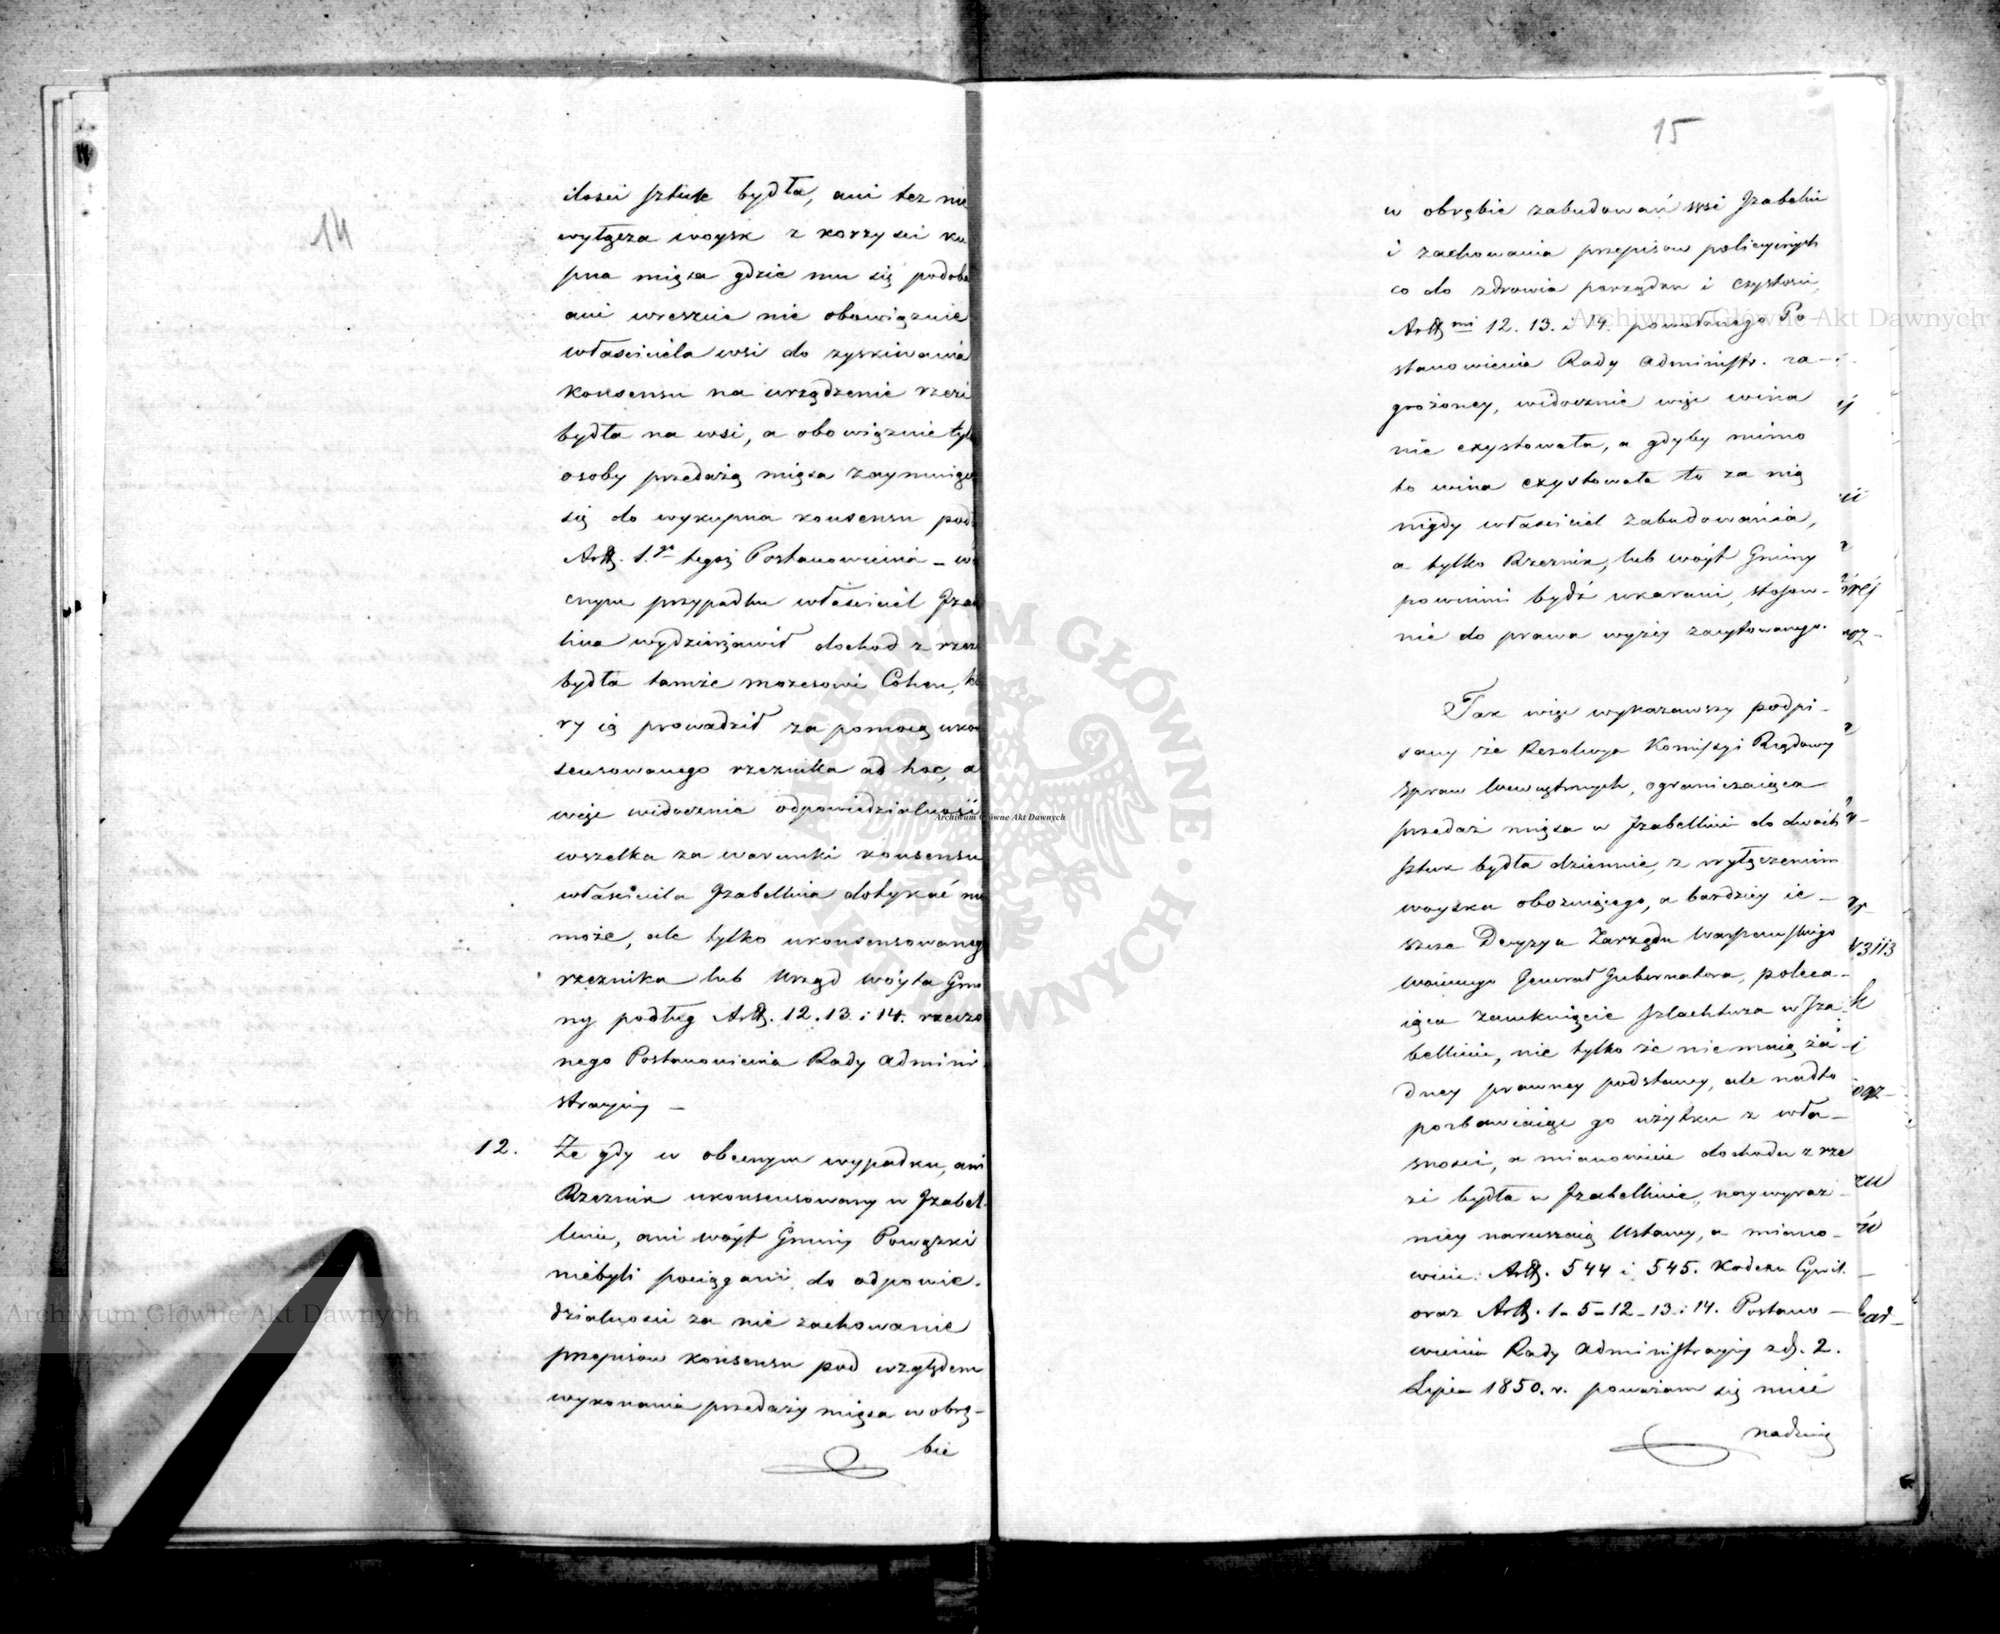 14
ilosci sztuk bydła, ani tez nie
wyłącza woysk z korzysci ku
pna mięsa gdzie mu się podoba
ani wreszcie nie obowiązuie
właściciela wsi do zyskiwania
konsensu na urządzenie rzezi
bydła na wsi, a obowiązuie tyl
osoby przedażą mięsa zaymuiące
się do wykupna konsensu pod
Artt. 1.go tegoż Postanowienia – w
cnym przypadku właściciel Iza
lina wydzierżawił dochod z rzez
bydła tamże Mozesowi Cohen, któ
ry ią prowadził za pomocą ukon
sensowanego rzeznika ad hoc, a
więc widocznie odpowiedzialność
wszelka za warunki konsensu
właściciela Izabellina dotykać nie
może, ale tylko ukonsensowaneg
rzeznika lub Urząd wóyta Gmi
ny podług Artt. 12. 13. i 14. rzeczo
nego Postanowienia Rady Admini
stracyiny –
12. Że gdy w obecnym wypadku, ani
Rzeznik ukonsensowany w Izabel-
linie, ani wóyt Gminy Powązki
niebyli pociągani do odpowie-
dzialnosci za nie zachowanie
przepisow konsensu pod względem
wykonania przedaży mięsa w obrę-
bie
15
w obrębie zabudowań wsi Izabelin
i zachowania przepisow policyinych
co do zdrowia porządku i czystosci,
Artt mi 12. 13. i 14. powołanego Po
stanowienia Rady Administr. za-
grożoney, widocznie więc wina
nie exystowała, a gdyby mimo
to wina exystowała to za nią
nigdy właściciel zabudowania,
a tylko Rzeznik, lub wóyt Gminy
powinni bydź ukarani, stosow-
nie do prawa wyżey zacytowanego.
Tak więc wykazawszy podpi-
sany że Rezolucya Komissyi Rządowy
Spraw Wewnętrznych, ograniczaiąca
przedaż mięsa w Izabellinie do dwóch
sztuk bydła dziennie, z wyłączeniem
woyska obozuiącego, a bardziey ie-
szcze Decyzya Zarządu Warszawskiego
Woiennego Generał Gubernatora, poleca-
iąca zamknięcie szlachtuza w Iza-
bellinie, nie tylko że nie maią ża-
dney prawney podstawy, ale nadto
pozbawiaiąc go użytku z wła-
sności, a mianowicie dochodu z rze
zi bydła w Izabellinie, naywyraź-
niey naruszaią Ustawy, a miano-
wicie: Artt. 544 i 545. Kodexu Cywil.
oraz Artt. 1– 5– 12– 13– i 14. Postano-
wienia Rady Administracyiny z d. 2.
Lipca 1850. r. poważam się mieć
nadzieię
Archiwum Główne Akt Dawnych
Archiwum Główne Akt Dawnych
Archiwum Główne Akt Dawnych
ARCHIWUM GŁÓWNE AKT DAWNYCH